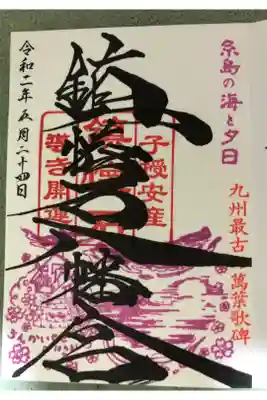 糸島の海と夕日
九州最古 萬葉歌碑
子授安産
鎮懐石八幡宮
導き開運
令和二年五月二十四日